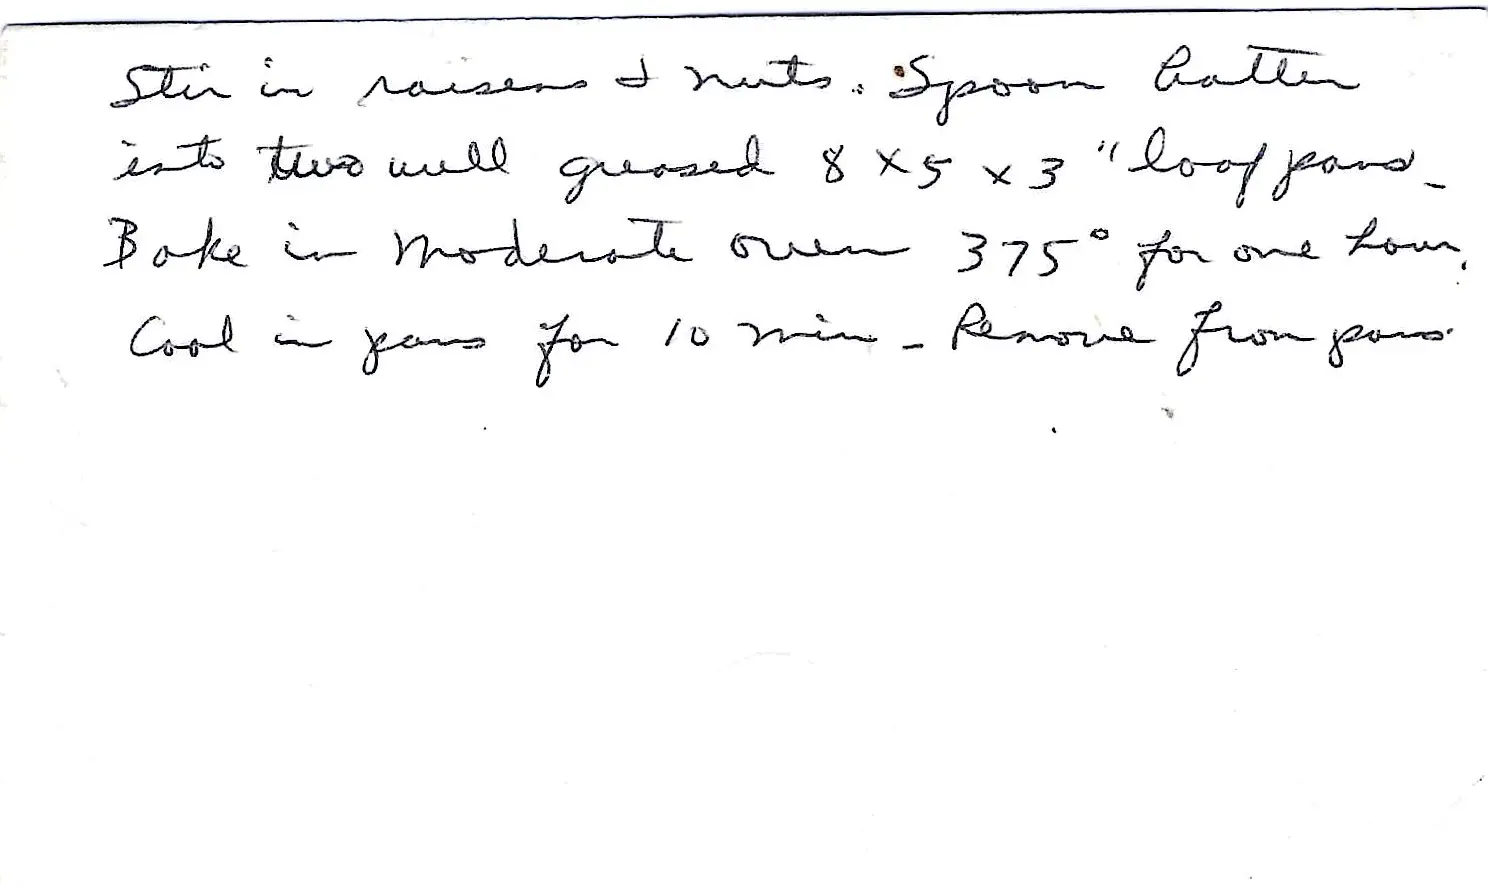 Stir in raisens & nuts. Spoon batter
into two well greased 8 x 5 x 3" loaf pans -
Bake in moderate oven 375° for one hour.
Cool in pans for 10 min - Remove from pans